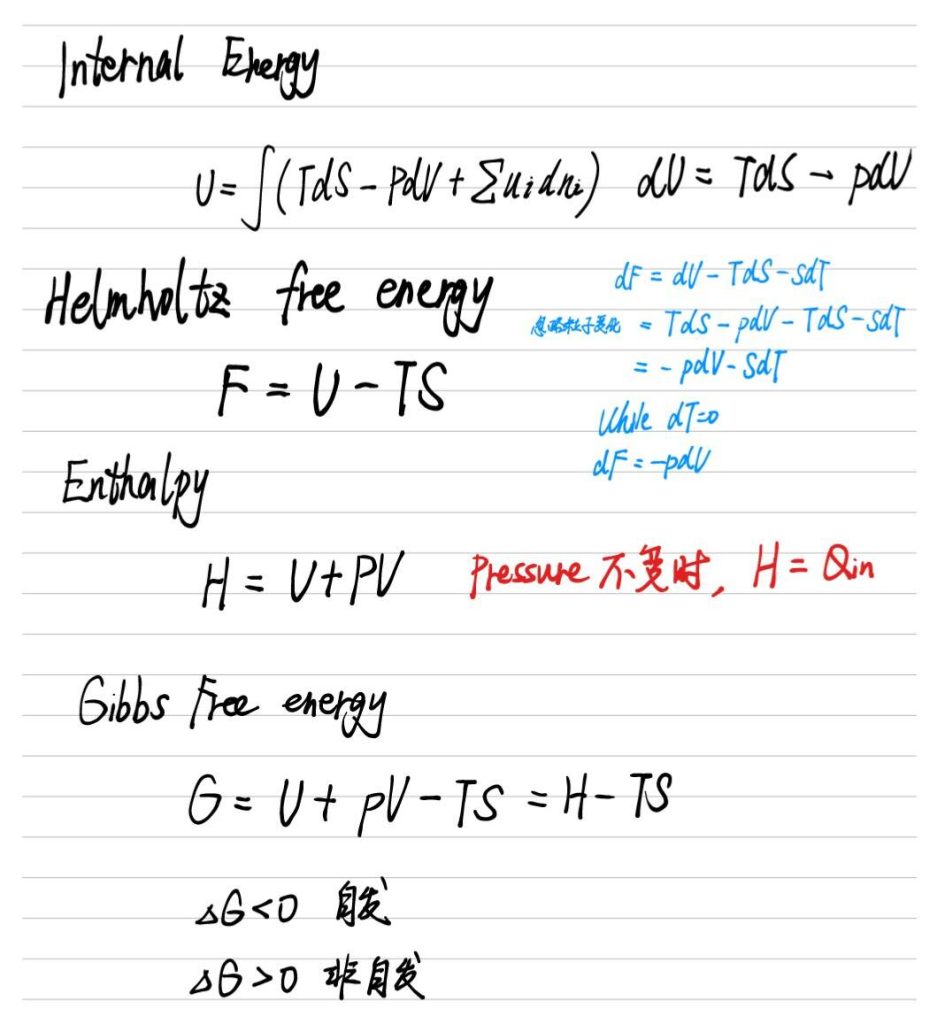 Internal Energy
U = ∫(TdS - PdV + Σuidni) dU = TdS - pdV
Helmholtz free energy
F = U - TS
dF = dU - TdS - SdT
忽略粒子变化 = TdS - pdV - TdS - SdT
= - pdV - SdT
While dT=0
dF = -pdV
Enthalpy
H = U + PV Pressure 不变时, H = Qin
Gibbs Free energy
G = U + pV - TS = H - TS
ΔG < 0 自发
ΔG > 0 非自发